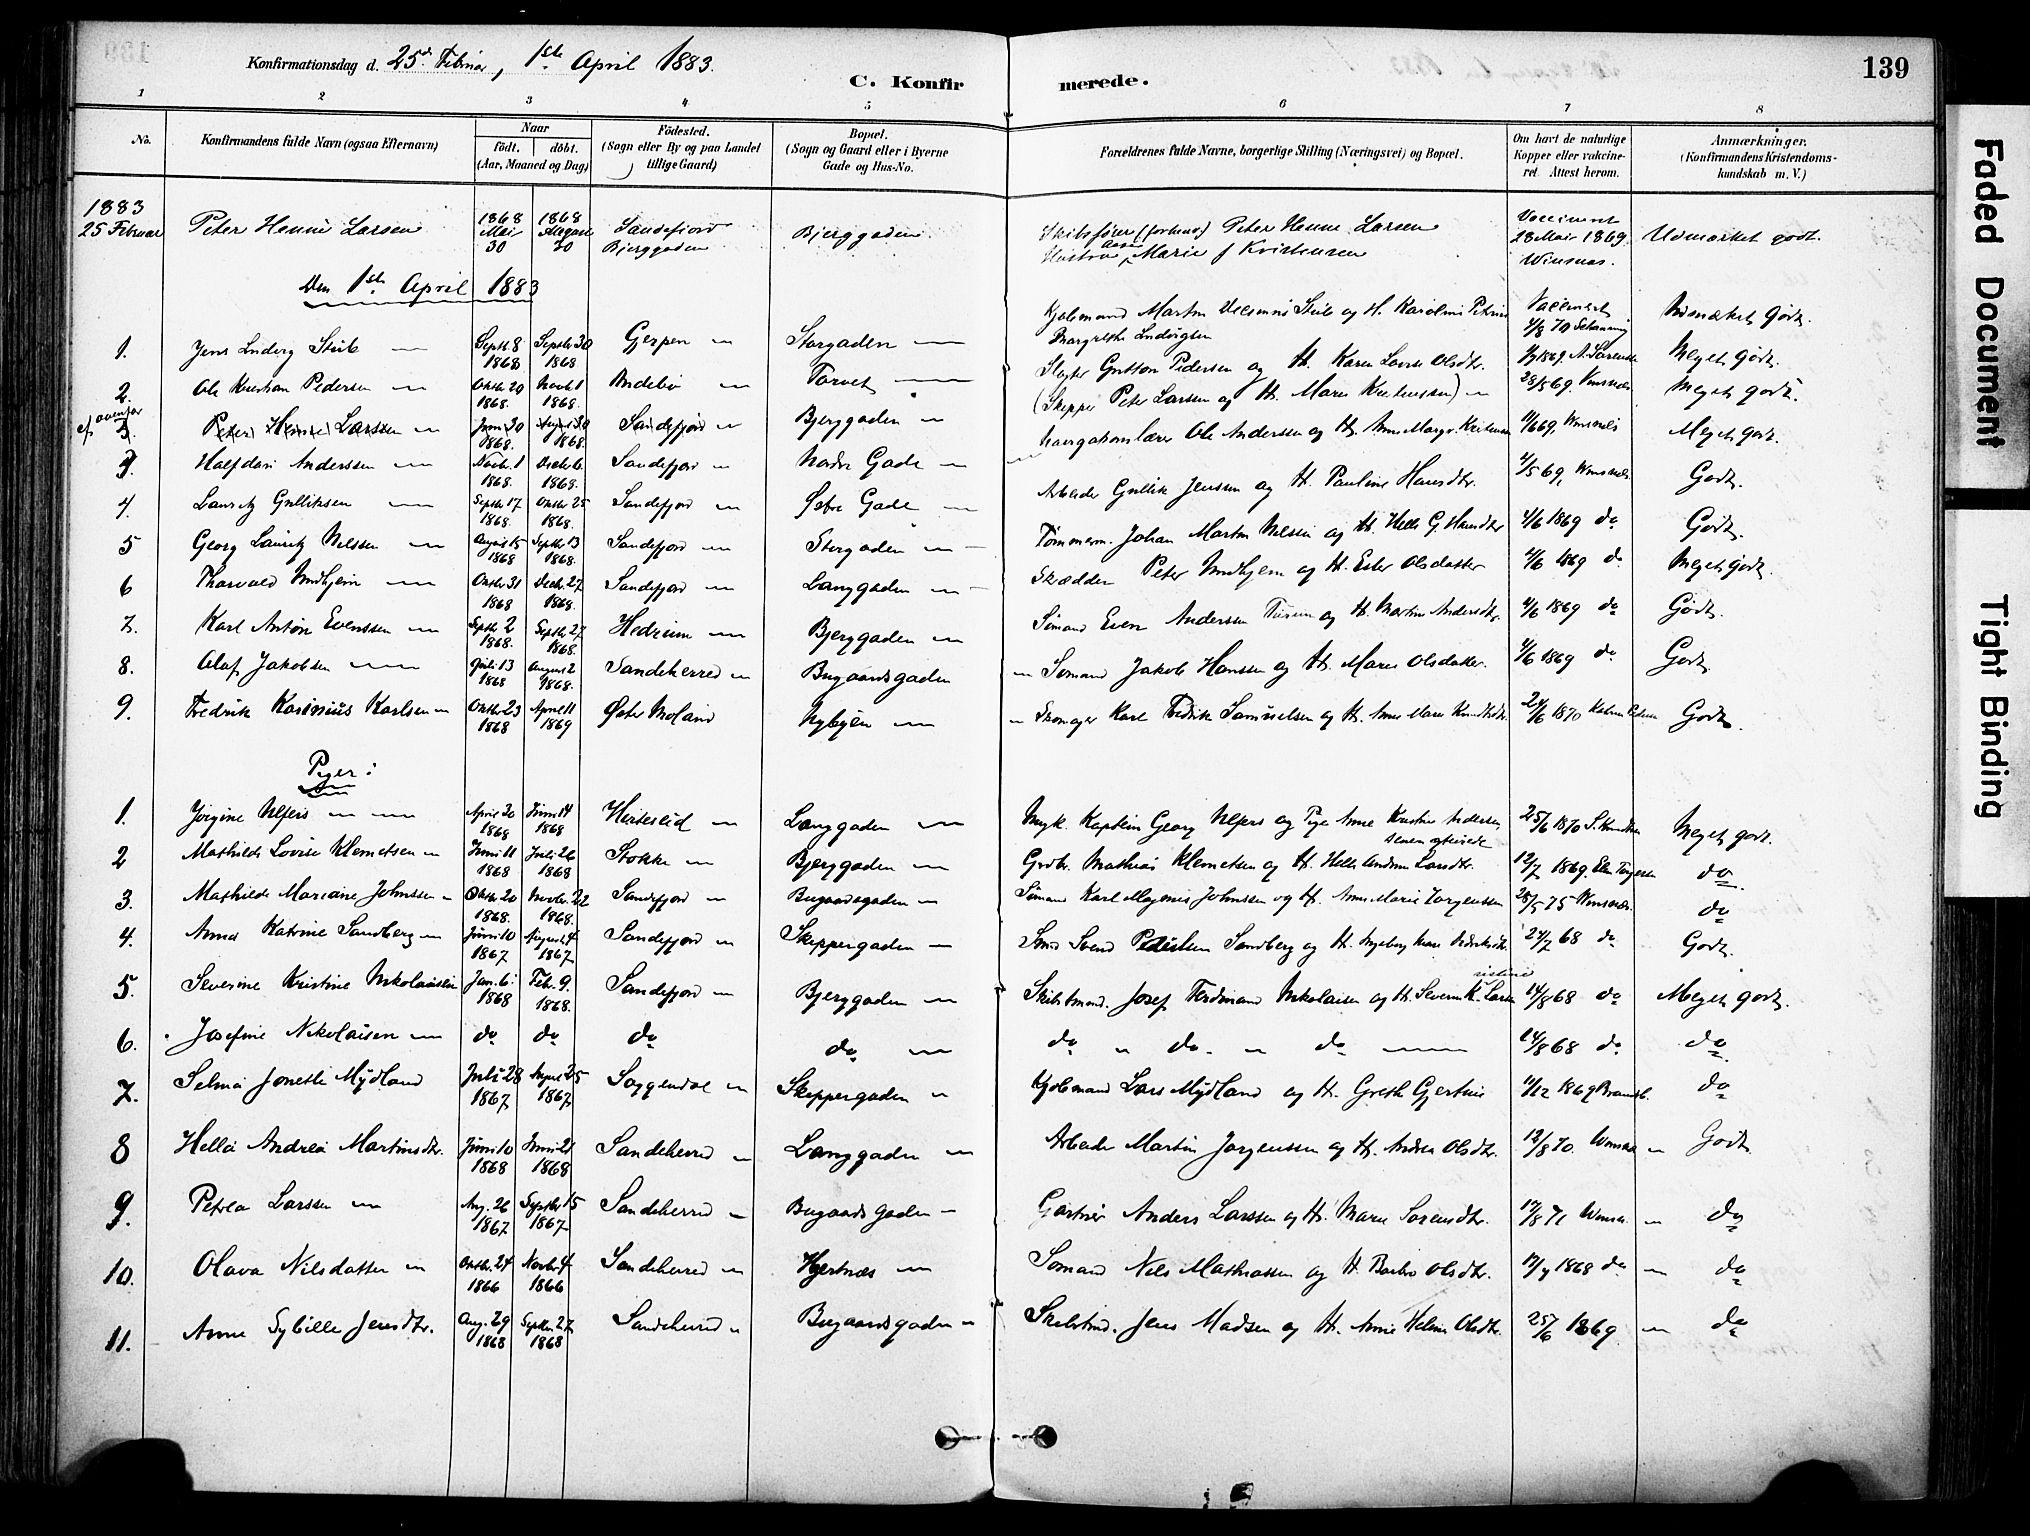 Konfirmationsdag d. 25de Februar, 1ste April 1883.
C. Konfirmerede.
139
1 2 3 4 5 6 7 8
No.
Konfirmandens fulde Navn (ogsaa Efternavn)
Naar
födt. döbt.
(Aar, Maaned og Dag)
Födested.
(Sogn eller By og paa Landet
tillige Gaard)
Bopæl.
(Sogn og Gaard eller i Byerne
Gade og Hus-No.
Forældrenes fulde Navne, borgerlige Stilling (Næringsvei) og Bopæl.
Om havt de naturlige
Kopper eller vakcine-
ret. Attest herom.
Anmærkninger.
(Konfirmandens Kristendoms-
kundskab m. V.)
1883
25 Februar Peter Henrie Larsen 1868 Mai 30 1868 August 30 Sandefjord Bjerggaden Bjerggaden. Skibsfører (forhenv) Peter Henrie Larsen Hustru Marie f Kristensen Vaccineret 28 Mai 1869 Winsnæs. Udmærket godt.
Den 1ste April 1883
1. Jens Ludvig Stub Septbr 8 1868 Septbr 30 1868 Gjerpen Storgaden Kjøbmand Martin Stub og H. Karoline Petrine Margrethe Ludvigsen Vaccineret 4/8 70 Udmærket godt.
2. Ole Kristian Pedersen Oktbr 20 1868. Novbr 1 1868. Andebu Torvet Slagter Guttorm Pedersen og H. Karen Lovise Olsdtr. 1869. A. Sørensen Meget godt.
cf. ovenfor 3. Peter Henrie Larssen Juni 30 1868. August 30 1868. Sandefjord Bjerggaden (Skipper Peter Larsen og H. Maren Kristenssen) 28/5 69. Winsnæs Meget godt.
3. Halfdan Anderssen Novbr. 1 1868. Decbr 6. 1868. Sandefjord Nordre Gade Navigationslærer Ole Anderssen og H. Anne Margr. Kristensen 4/6 69, Winsnæs Meget godt.
4. Lauritz Gulliksen Septbr 17 1868. Oktbr 25 1868. Sandefjord Østre Gade Arbeider Gullik Jenssen og H. Pauline Hansdtr. 4/5 69, Winsnæs. Godt.
5 Georg Lauritz Nilssen August 15 1868 Septbr 13 1868. Sandefjord Storgaden Tømmerm. Johan Martin Nilssen og H. Helle G. Hansdtr 4/6 1869 do Godt.
6 Thorvald Undhjem Oktbr 31 1868 Decbr. 27 1868. Sandefjord Langgaden Skrædder Peter Undhjem og H. Ester Olsdatter 4/6 1869 do Meget godt.
7. Karl Anton Evenssen Septbr 2 1868. Septbr 27 1868. Hedrum Bjerggaden Sømand Even Anderssen og H. Martine Andersdtr. 4/6 1869 do Godt.
8. Olaf Jakobsen Juli 13 1868 August 2 1868. Sandeherred Bugaardsgaden Sømand Jakob Hanssen og H. Maren Olsdatter. 4/6 1869 do Godt.
9. Fredrik Kasinius Karlsen Oktbr 23 1868 April 11 1869 Øster Moland Nybyen Skomager Karl Fredrik Samuelsen og H. Anne Maren Knudsdtr. 24/6 1870 Godt.
Piger:
1. Jørgine Ulfers April 20 1868 Juni 14 1868 Hitteslid Langgaden Kaptein Georg Ulfers og Pige Anne Kristine Andersen senere ægteviede 25/6 1870 S. Knudsen Meget godt.
2 Mathilde Lovise Klemetsen Juni 11 1868 Juli 26 1868 Stokke Bjerggaden Grdbr. Mathias Klemetsen og H. Helle Andrine Larsdtr. 12/7 1869. do.
3. Mathilde Mariane Johnssen Oktbr 20 1868. Novbr. 22 1868. Sandefjord Bugaardsgaden Sømand Karl Magnus Johnssen og H. Anne Marie Jørgenssen 28/5 75 Winsnæs. do
4. Anna Katrine Sandberg Juni 10 1867 August 4 1867 Sandefjord Skippergaden Smed Svend Pedersen Sandberg og H. Ingeborg 24/7 68 do Godt.
5. Severine Kristine Nikolaisen Jan. 6. 1868 Feb. 9. 1868. Sandefjord Bjerggaden Skibstmd. Josef Ferdinand Nikolaisen og H. Severine Kristine Larsen 14/8 68 do Meget godt.
6. Josefine Nikolaisen do do do do do " do. " do 14/8 68 do do.
7. Selma Jonette Mydland Juli 28 1867 August 25 1867. Soggendal Skippergaden Kjøbmand Lars Mydland og H. Grethe Gjertine 4/12 1869 do
8 Hella Andrea Martinsdtr. Juni 10 1868 Juni 21 1868 Sandeherred Langgaden Arbeider Martin Jørgenssen og H. Andrea Olsdtr. 12/8 70. Winsnæs Godt
9. Petrea Larssen Aug. 26 1867 Septbr 15 1867 Sandeherred Bugaardsgaden Gartner Anders Larssen og H. Maren Sørensdtr. 17/8 71 Winsn. do
10. Olava Nilsdatter Oktbr. 24 1866 Novbr. 4 1866 Sandeherred Hjertnæs Sømand Nils Mathiassen og H. Barbro Olsdtr. 17/7 1868 do do
11. Anne Sybille Jensdtr. Aug. 29 1868 Septbr. 27 1868 Sandeherred Bugaardsgaden Skibstmd. Jens Madsen og H. Anne Helene Olsdtr. 25/6 1869 do
Faded Document
Tight Binding